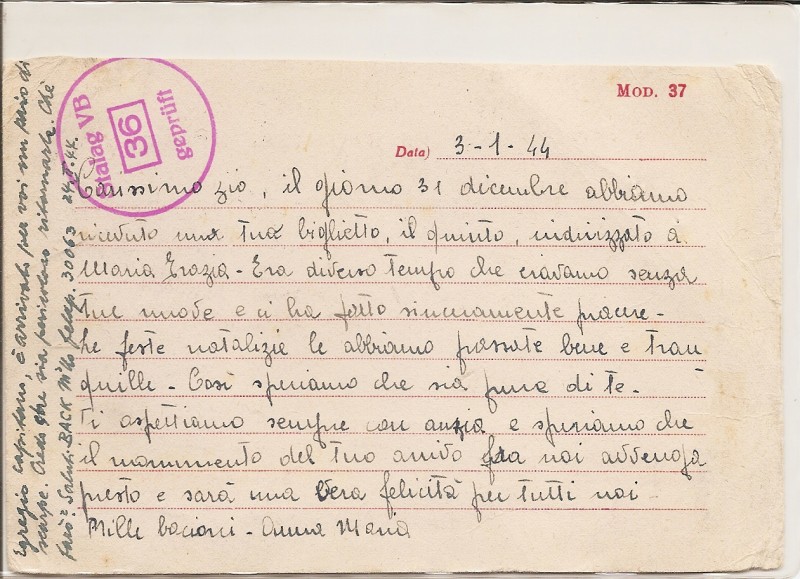 Mod. 37
Stalag VB
36
geprüft
Data) 3-1-44
Carissimo zio, il giorno 31 dicembre abbiamo
ricevuto una tua biglietto, il quinto, indirizzato a
Maria Grazia - Era diverso tempo che eravamo senza
tue nuove e ci ha fatto sinceramente piacere -
Le feste natalizie le abbiamo passate bene e tran
quille - Così speriamo che sia pure di te -
Ti aspettiamo sempre con ansia e speriamo che
il mommento del tuo arrivo fra noi avvenga
presto e sarà una vera felicità per tutti noi
Mille bacioni - Anna Maria
Egregio Capitano, è arrivato per voi un paio di
scarpe. Credo che sia pericoloso ritornarle. Che
farò? Saluti. BACK 30063 24.II.44.